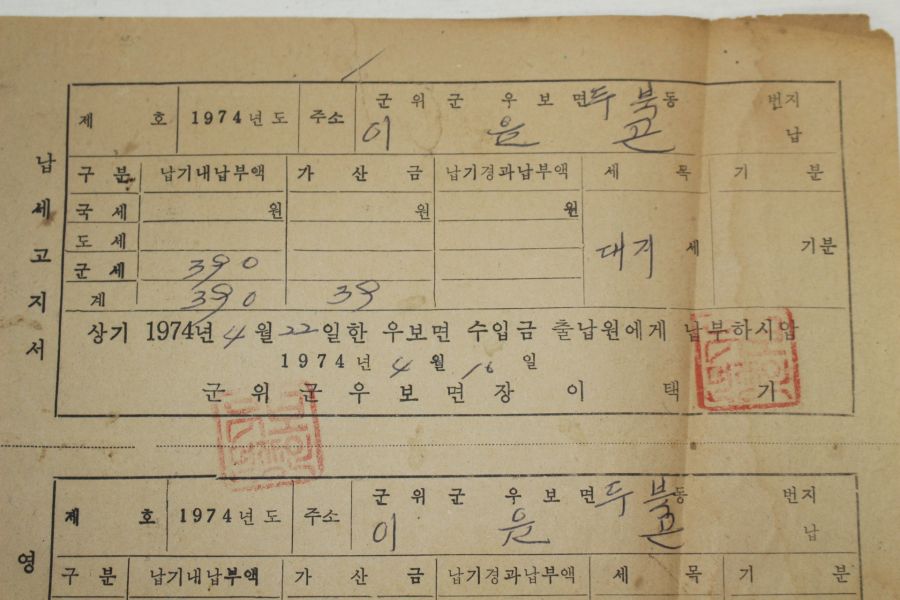 납세고지서
제 호 1974년도 주소 군위군 우보면 두북동 번지
이 윤 납
구분 납기내납부액 가산금 납기경과납부액 세목 기분
국세 원 원 원
도세 대지세 기분
군세 390
계 390 39
상기 1974년 4월 22일한 우보면 수입금 출납원에게 납부하시압
1974년 4월 16일
군위군우보면장 이택기
제 호 1974년도 주소 군위군 우보면 두북동 번지
이 윤 납
영
구분 납기내납부액 가산금 납기경과납부액 세목 기분